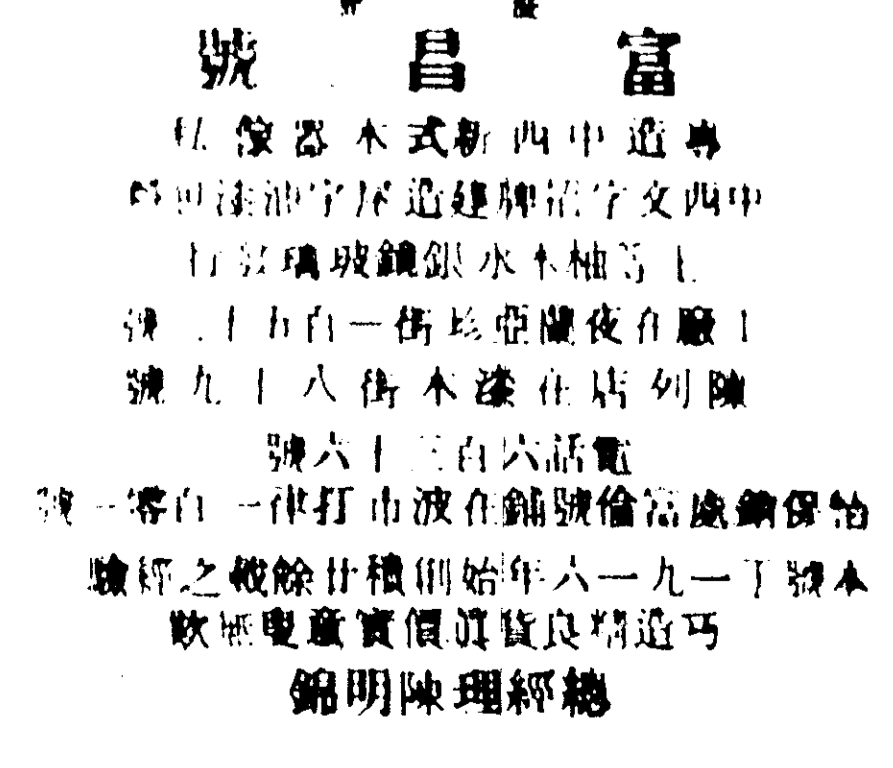 富昌號
專造中西新式木器傢私
中西文字招牌建造屋宇油漆
上等柚木水銀鏡玻璃發行
工廠在夜蘭亞珍街一百五十二號
陳列店在漆木街八十九號
電話六百三十六號
怡保鋼鐵富倫號鋪在波巿打律一百零一號
本號于一九一六年始創積廿餘載之經驗
巧造精良貨真價實童叟無欺
總經理陳明錦